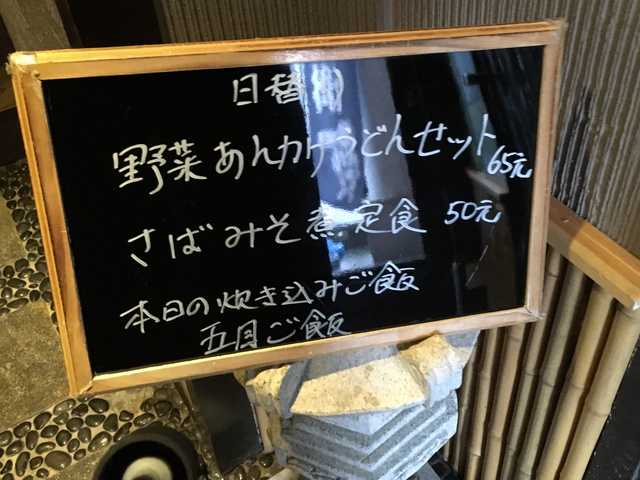 日替り
野菜あんかけうどんセット 65元
さばみそ煮定食 50元
本日の炊き込みご飯
五目ご飯